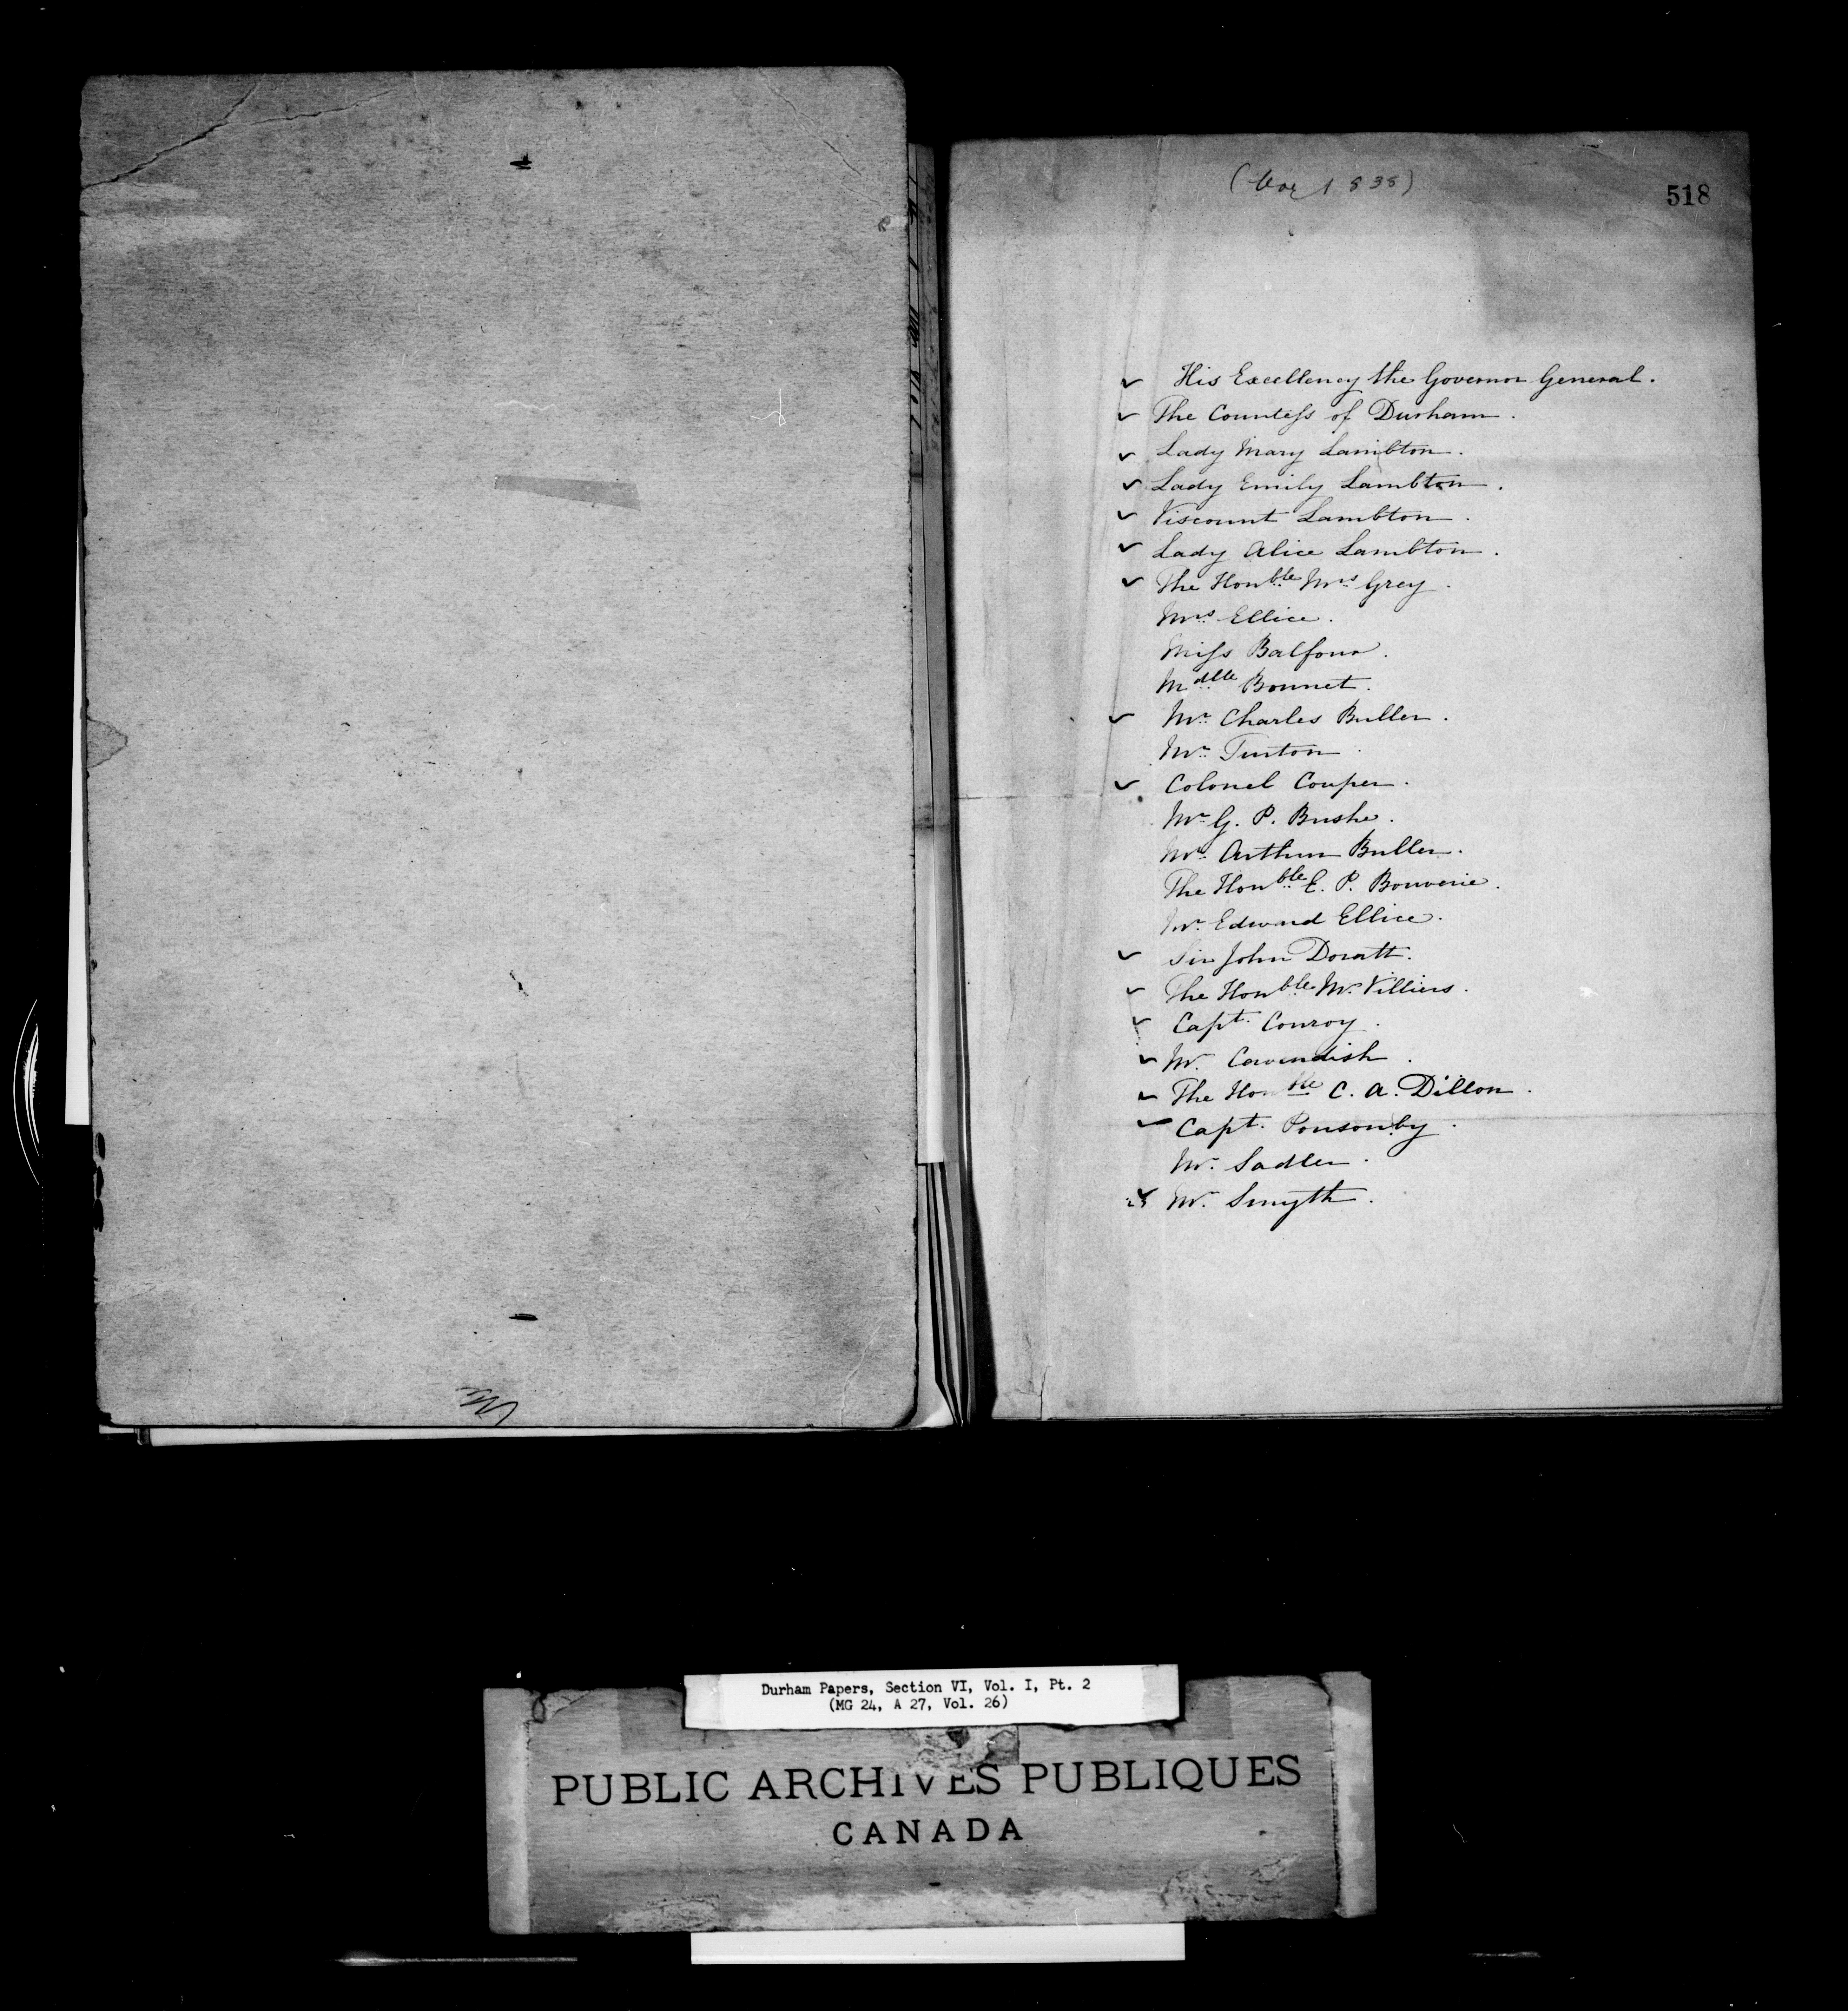 1838)
518
✓ His Excellency the Governor General.
✓ The Countess of Durham.
✓ Lady Mary Lambton.
✓ Lady Emily Lambton.
✓ Viscount Lambton.
✓ Lady Alice Lambton.
✓ The Honble Mrs Grey.
Mrs Ellice.
Miss Balfour.
Mdlle Bonnet.
✓ Mr Charles Buller.
Mr Turton.
✓ Colonel Couper.
Mr G. P. Bushe.
Mr Arthur Buller.
The Honble E. P. Bouverie.
Mr Edward Ellice.
✓ Sir John Doratt.
✓ The Honble Mr Villiers.
✓ Capt. Conroy.
✓ Mr. Cavendish.
✓ The Honble C. A. Dillon.
✓ Capt. Ponsonby.
Mr. Sadler.
✓ Mr. Smyth.
Durham Papers, Section VI, Vol. I, Pt. 2
(MG 24, A 27, Vol. 26)
PUBLIC ARCHIVES PUBLIQUES
CANADA